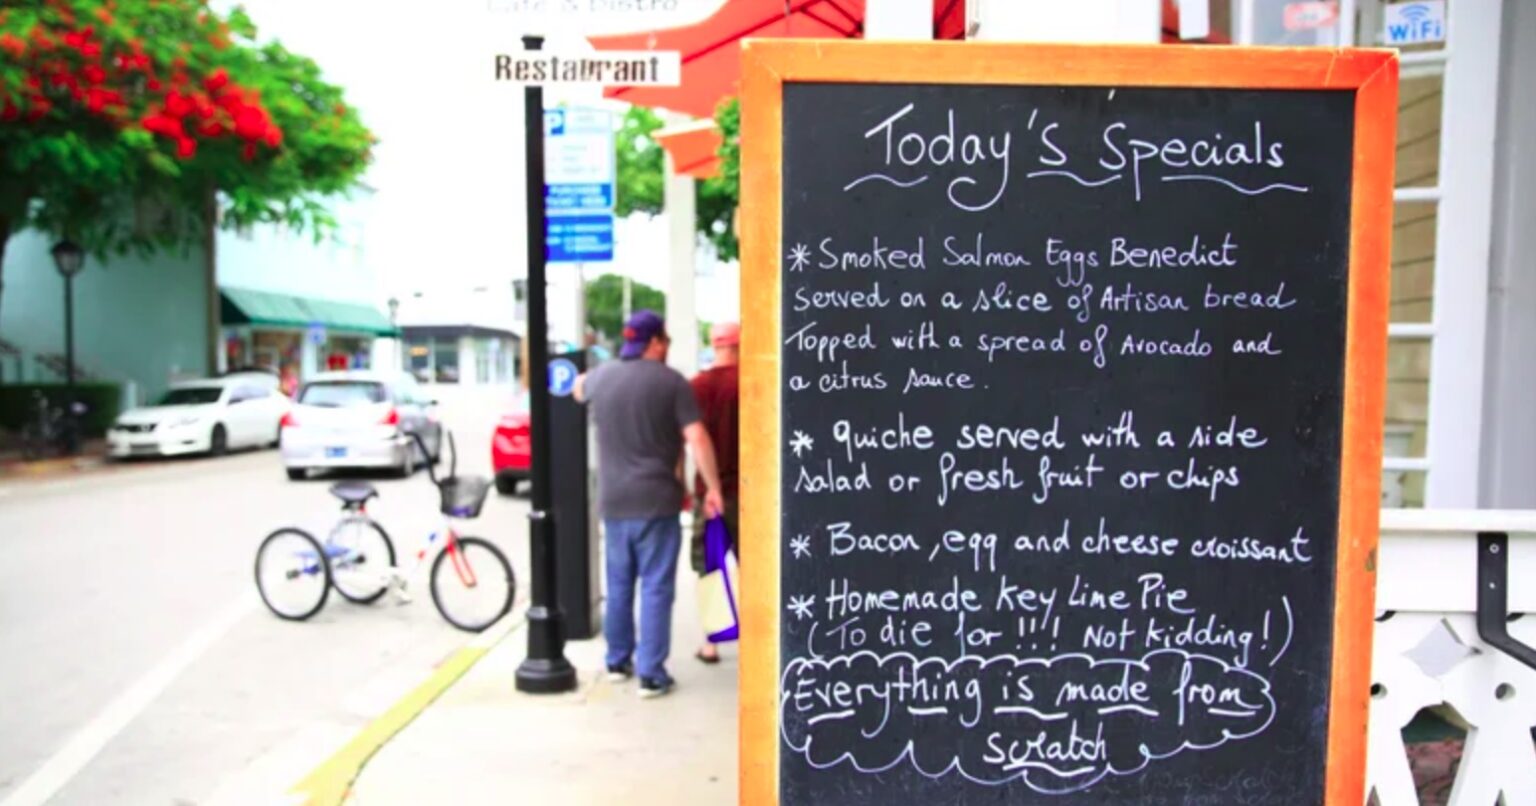 Café & Bistro
Restaurant
P
P
WiFi
Today's Specials
* Smoked Salmon Eggs Benedict
served on a slice of Artisan bread
Topped with a spread of Avocado and
a citrus sauce.
* quiche served with a side
salad or fresh fruit or chips
* Bacon, egg and cheese croissant
* Homemade Key Lime Pie
(To die for !!! Not kidding!)
Everything is made from
scratch